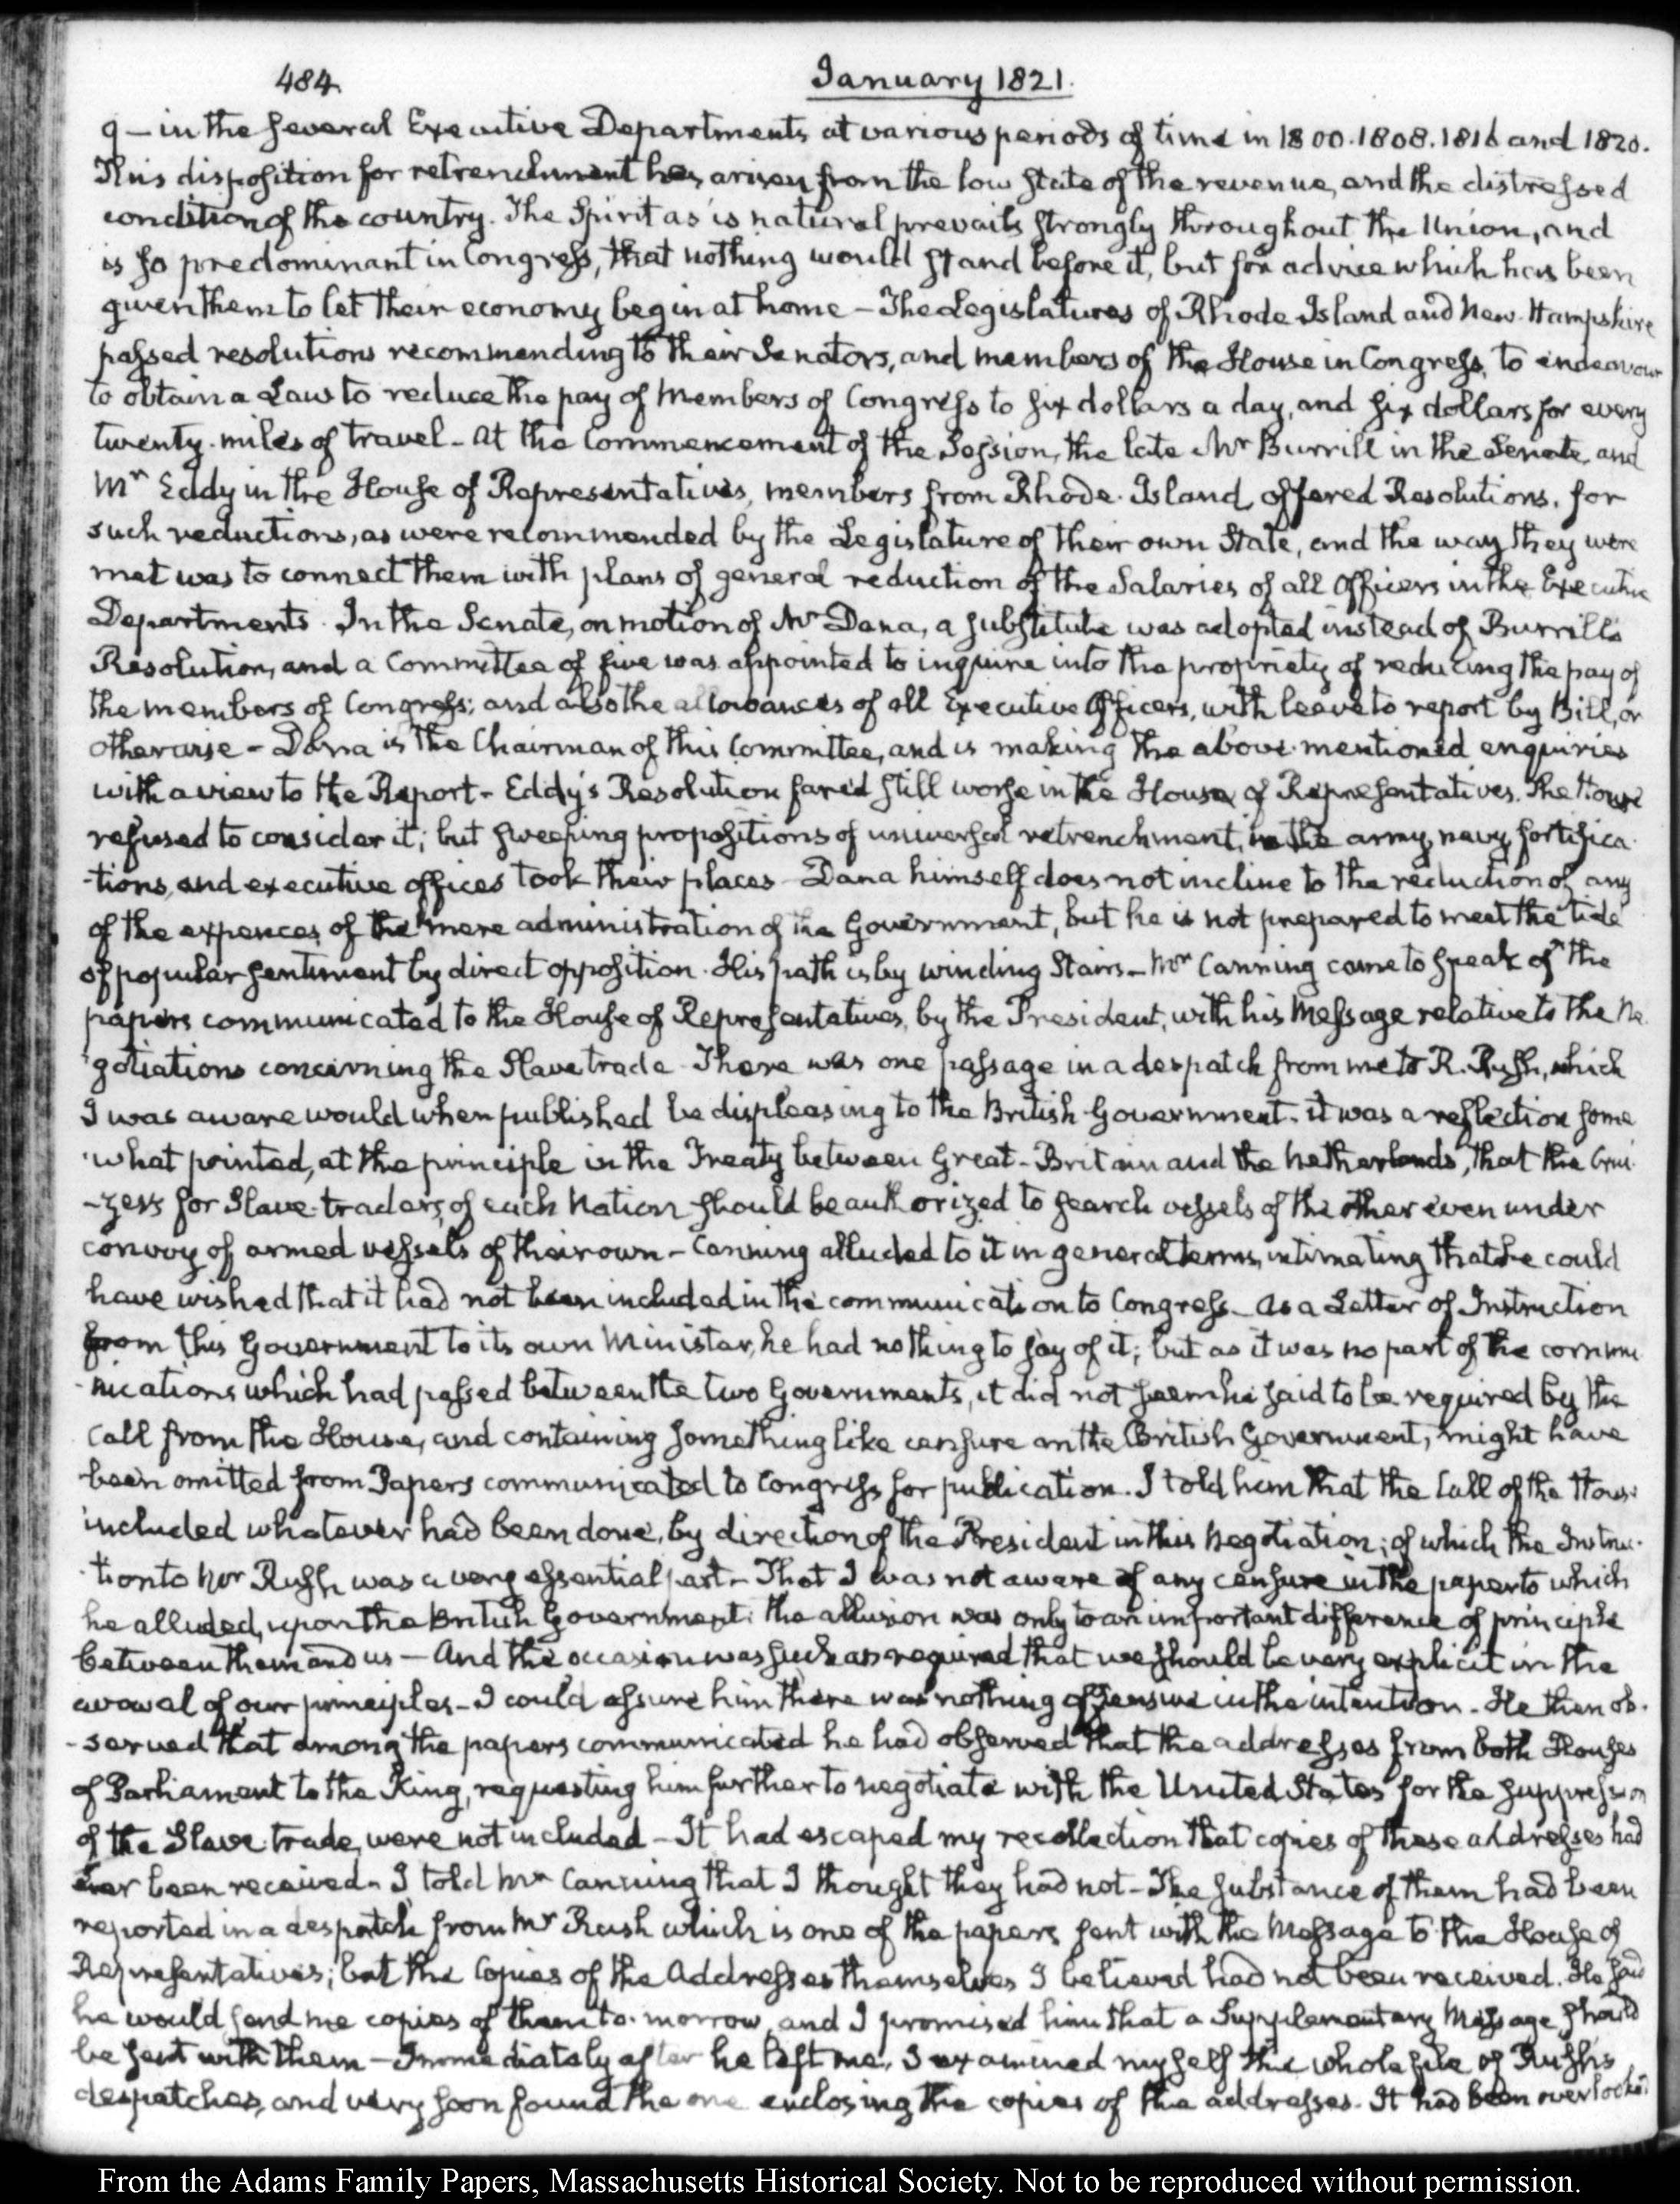 484.
January 1821.
9 — in the several Executive Departments at various periods of time in 1800. 1808. 1816 and 1820.
This disposition for retrenchment has arisen from the low state of the revenue, and the distressed
condition of the country. The Spirit as is natural prevails strongly throughout the Union, and
is so predominant in Congress, that nothing would stand before it, but for advice which has been
given them to let their economy begin at home — The Legislatures of Rhode Island and New-Hampshire
passed resolutions recommending to their Senators, and members of the House in Congress, to endeavour
to obtain a Law to reduce the pay of Members of Congress to six dollars a day, and six dollars for every
twenty miles of travel — At the Commencement of the Session, the late Mr Burrill in the Senate, and
Mr Eddy in the House of Representatives, members from Rhode-Island, offered Resolutions, for
such reductions, as were recommended by the Legislature of their own State, and the way they were
met was to connect them with plans of general reduction of the Salaries of all Officers in the Executive
Departments. In the Senate, on motion of Mr Dana, a substitute was adopted instead of Burrill's
Resolution, and a Committee of five was appointed to inquire into the propriety of reducing the pay of
the members of Congress; and also the allowances of all Executive Officers, with leave to report by Bill, or
otherwise — Dana is the Chairman of this Committee, and is making the above-mentioned enquiries
with a view to the Report — Eddy's Resolution fared still worse in the House of Representatives. The House
refused to consider it; but sweeping propositions of universal retrenchment, in the army, navy, fortifica-
-tions, and executive offices took their places — Dana himself does not incline to the reduction of any
of the expences of the mere administration of the Government, but he is not prepared to meet the tide
of popular sentiment by direct opposition. His path is by winding Stairs — Mr Canning came to speak of the
papers communicated to the House of Representatives, by the President, with his Message relative to the Ne-
gotiations concerning the Slave trade. There was one passage in a despatch from me to R. Rush, which
I was aware would when published be displeasing to the British Government. it was a reflection some
what pointed, at the principle in the Treaty between Great-Britain and the Netherlands, that the Crui-
-zers for Slave-traders, of each Nation should be authorized to search vessels of the other even under
convoy of armed vessels of their own — Canning alluded to it in general terms, intimating that he could
have wished that it had not been included in the communication to Congress — As a Letter of Instruction
from this Government to its own Minister, he had nothing to say of it; but as it was no part of the commu
-nications which had passed between the two Governments, it did not seem he said to be required by the
Call from the House, and containing something like censure on the British Government, might have
been omitted from Papers communicated to Congress for publication. I told him that the Call of the House
included whatever had been done, by direction of the President in this Negotiation; of which the Instruc-
-tion to Mr Rush was a very essential part — That I was not aware of any censure in the paper to which
he alluded, upon the British Government: the allusion was only to an important difference of principle
between them and us — And the occasion was such as required that we should be very explicit in the
avowal of our principles — I could assure him there was nothing offensive in the intention — He then ob-
-served that among the papers communicated he had observed that the addresses from both Houses
of Parliament to the King, requesting him further to negotiate with the United States for the suppression
of the Slave-trade, were not included — It had escaped my recollection that copies of these addresses had
ever been received — I told Mr Canning that I thought they had not — The substance of them had been
reported in a despatch from Mr Rush which is one of the papers sent with the Message to the House of
Representatives; but the Copies of the Addresses themselves I believed had not been received. He said
he would send me copies of them to-morrow, and I promised him that a Supplementary Message should
be sent with them — Immediately after he left me, I examined myself the whole file of Rush's
despatches, and very soon found the one enclosing the copies of the addresses. It had been overlooked
From the Adams Family Papers, Massachusetts Historical Society. Not to be reproduced without permission.